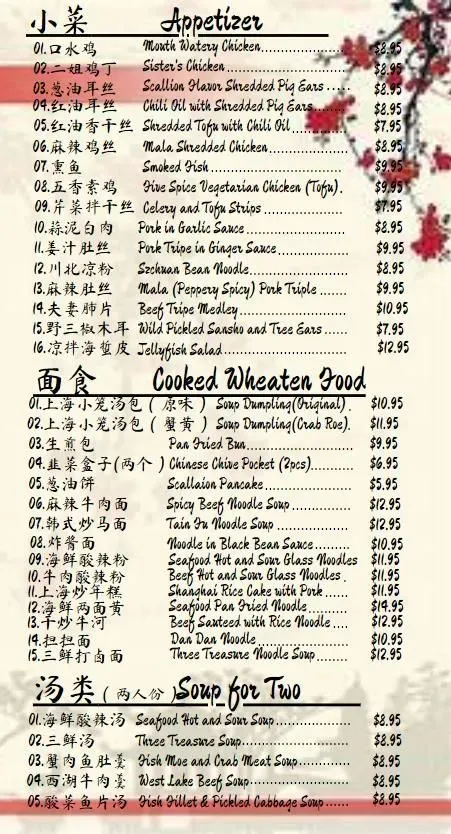 小菜 Appetizer
01.口水鸡 Mouth Watery Chicken $8.95
02.二姐鸡丁 Sister's Chicken $8.95
03.葱油耳丝 Scallion Flavor Shredded Pig Ears $8.95
04.红油耳丝 Chili Oil with Shredded Pig Ears $8.95
05.红油香干丝 Shredded Tofu with Chili Oil $7.95
06.麻辣鸡丝 Mala Shredded Chicken $8.95
07.熏鱼 Smoked Fish $9.95
08.五香素鸡 Five Spice Vegetarian Chicken (Tofu). $9.95
09.芹菜拌干丝 Celery and Tofu Strips $7.95
10.蒜泥白肉 Pork in Garlic Sauce $8.95
11.姜汁肚丝 Pork Tripe in Ginger Sauce $9.95
12.川北凉粉 Szchuan Bean Noodle $8.95
13.麻辣肚丝 Mala (Peppery Spicy) Pork Triple $9.95
14.夫妻肺片 Beef Tripe Medley $10.95
15.野三椒木耳 Wild Pickled Sansho and Tree Ears $7.95
16.凉拌海蜇皮 Jellyfish Salad $12.95
面食 Cooked Wheaten Food
01.上海小笼汤包(原味) Soup Dumpling(Original). $10.95
02.上海小笼汤包(蟹黄) Soup Dumpling(Crab Roe). $11.95
03.生煎包 Pan Fried Bun $9.95
04.韭菜盒子(两个) Chinese Chive Pocket (2pcs) $6.95
05.葱油饼 Scallaion Pancake $5.95
06.麻辣牛肉面 Spicy Beef Noodle Soup $12.95
07.韩式炒马面 Tain Fu Noodle Soup $12.95
08.炸酱面 Noodle in Black Bean Sauce $10.95
09.海鲜酸辣粉 Seafood Hot and Sour Glass Noodles $11.95
10.牛肉酸辣粉 Beef Hot and Sour Glass Noodles. $11.95
11.上海炒年糕 Shanghai Rice Cake with Pork $11.95
12.海鲜两面黄 Seafood Pan Fried Noodle $14.95
13.干炒牛河 Beef Sauteed with Rice Noodle $12.95
14.担担面 Dan Dan Noodle $10.95
15.三鲜打卤面 Three Treasure Noodle Soup $12.95
汤类(两人份) Soup for Two
01.海鲜酸辣汤 Seafood Hot and Sour Soup $8.95
02.三鲜汤 Three Treasure Soup $8.95
03.蟹肉鱼肚羹 Fish Moe and Crab Meat Soup $8.95
04.西湖牛肉羹 West Lake Beef Soup $8.95
05.酸菜鱼片汤 Fish Fillet & Pickled Cabbage Soup $8.95